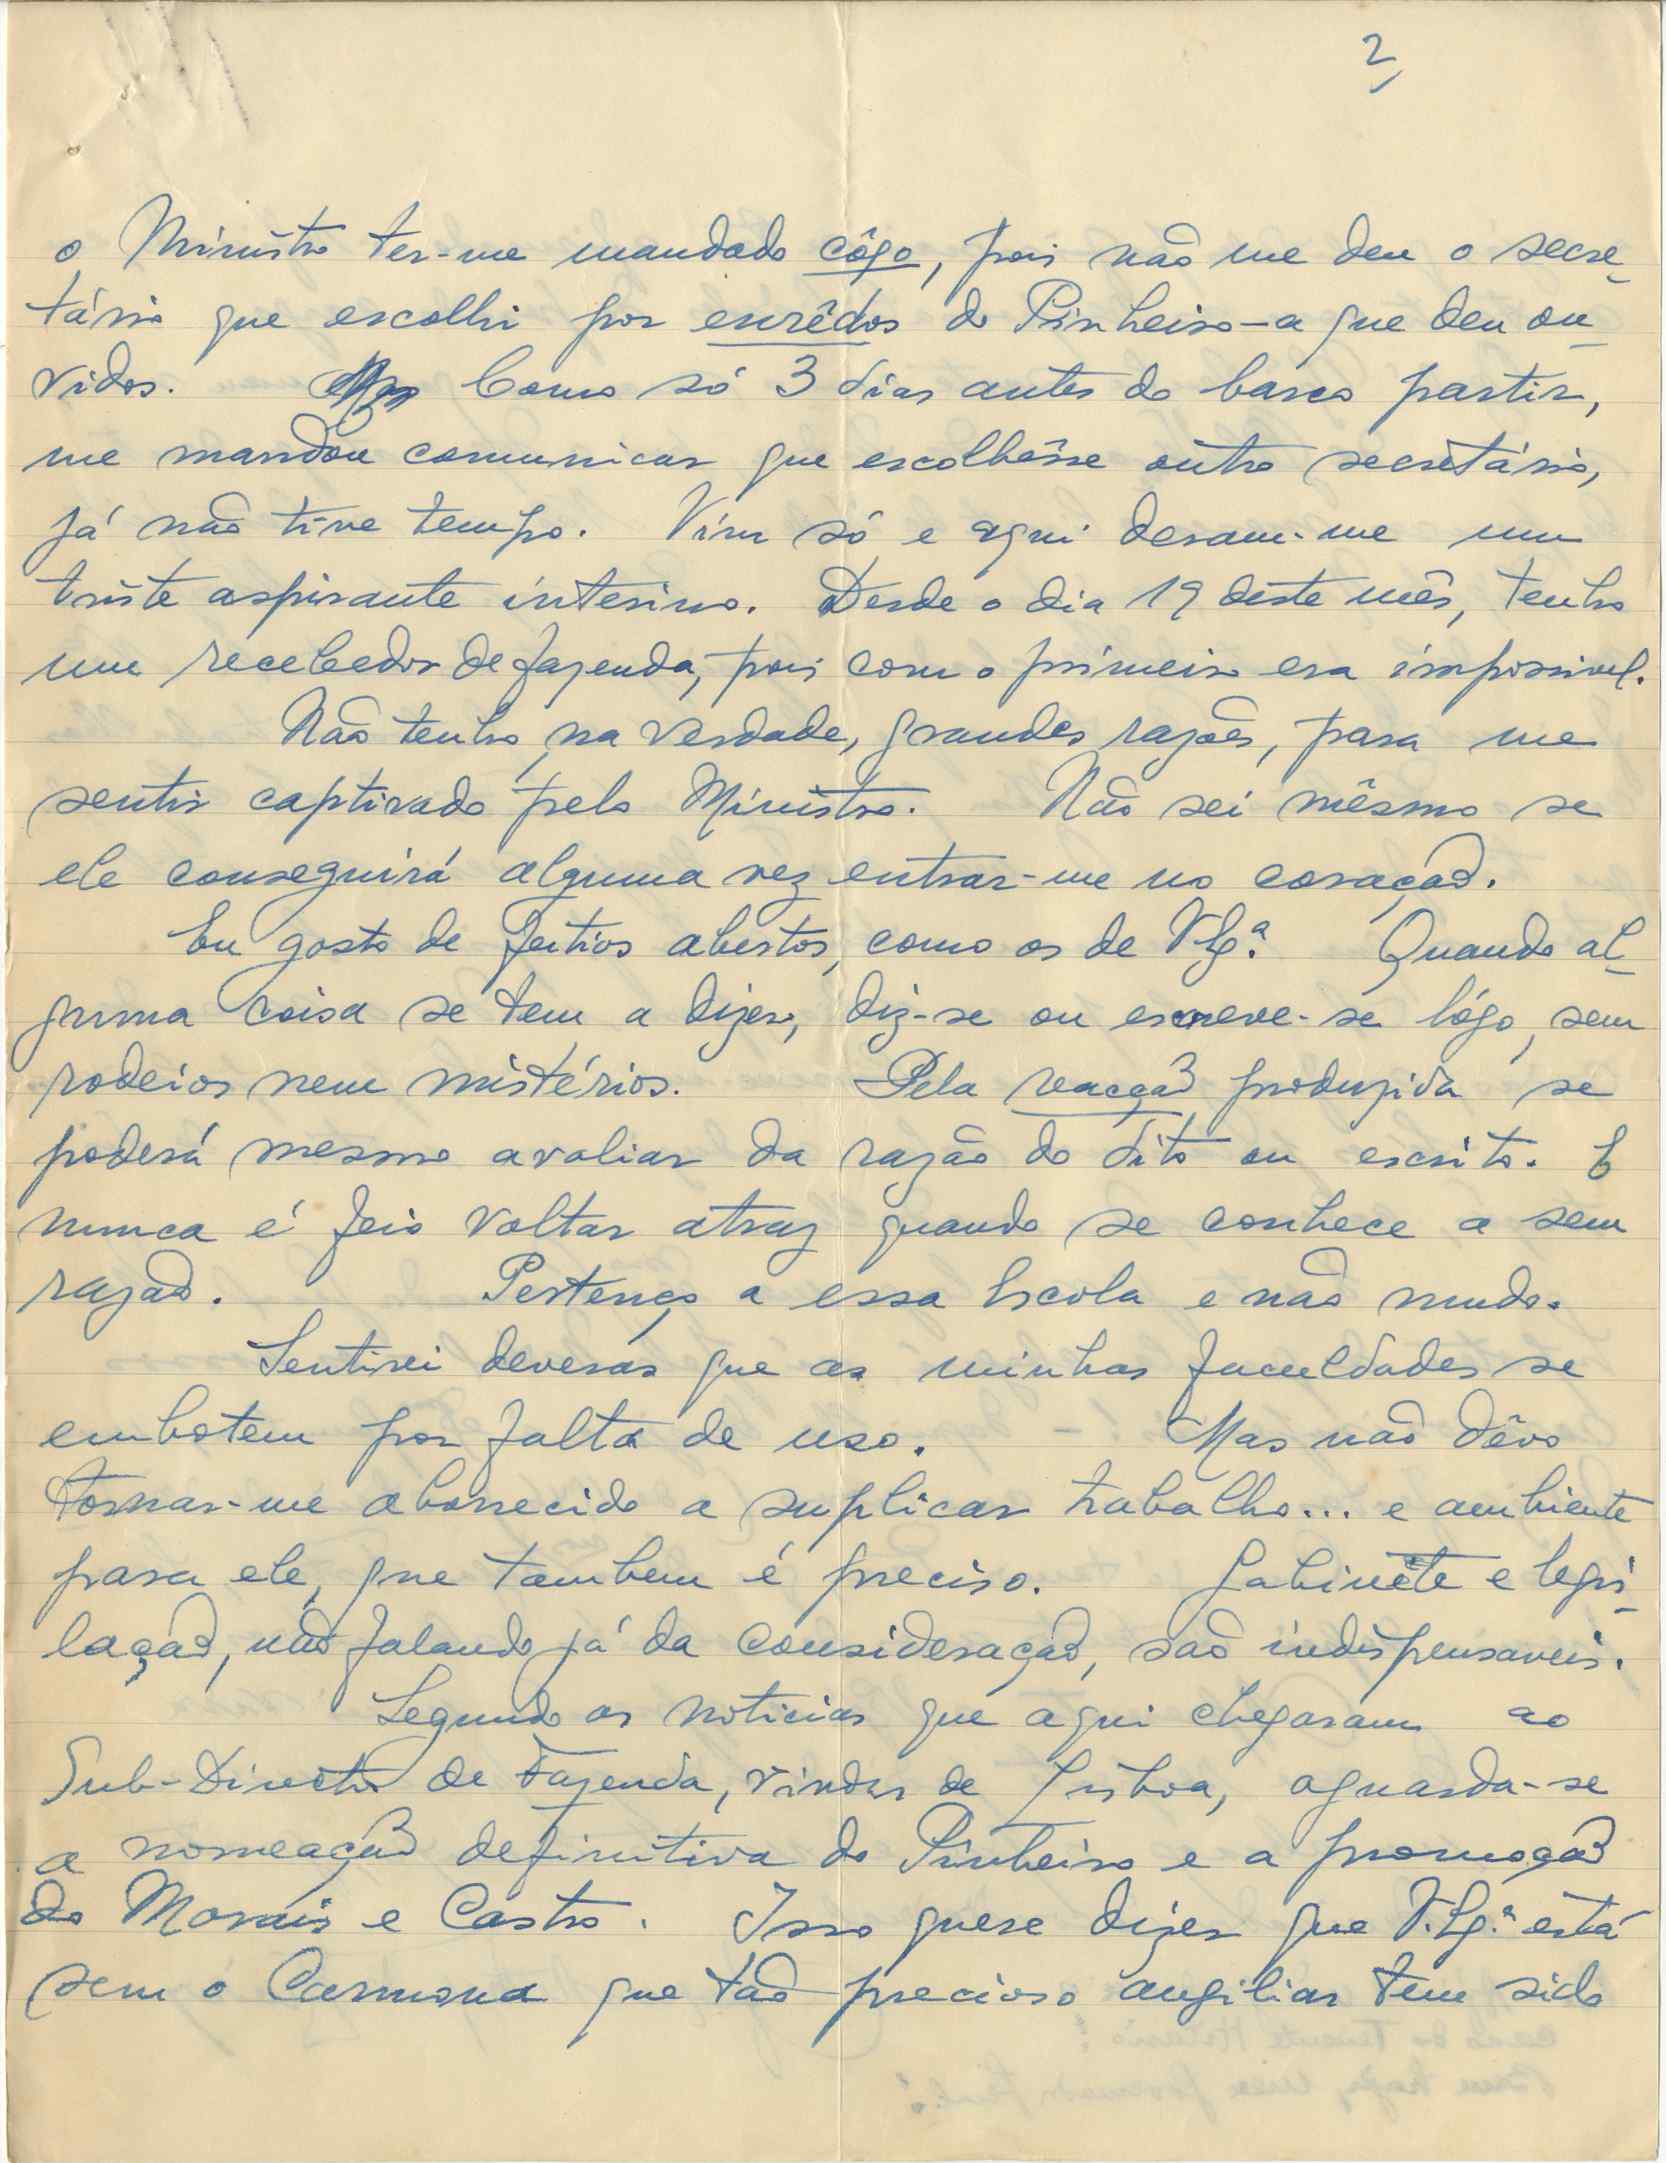 2,
o Ministro ter-me mandado côgo, pois não me deu o secre-
tário que escolhi por enrêdos do Pinheiro - a que deu ou-
vidos. Como só 3 dias antes do barco partir,
me mandou comunicar que escolhêsse outro secretário,
já não tive tempo. Vim só e aqui deram-me um
triste aspirante interino. Desde o dia 19 deste mês, tenho
um recebedor de fazenda, pois com o primeiro era impossivel.
Não tenho, na verdade, grandes razões, para me
sentir captivado pelo Ministro. Não sei mêsmo se
ele conseguirá alguma vez entrar-me no coração.
Eu gosto de feitios abertos, como os de V. Ex.ª Quando al-
guma coisa se tem a dizer, diz-se ou escreve-se lógo, sem
rodeios nem mistérios. Pela reacção produzida se
poderá mesmo avaliar da razão do dito ou escrito. E
nunca é feio voltar atraz quando se conhece a sem
razão. Pertenço a essa Escola e não mudo.
Sentirei deveras que as minhas faculdades se
embotem por falta de uso. - Mas não dêvo
tornar-me aborrecido a suplicar trabalho... e ambiente
para ele, que tambem é preciso. Gabinête e legis-
lação, não falando já da consideração, são indispensaveis.
Segundo as noticias que aqui chegaram ao
Sub-Director de Fazenda, vindas de Lisboa, aguarda-se
a nomeação definitiva do Pinheiro e a promoção
do Morais e Castro. Isso quere dizer que V. Ex.ª está
sem o Carmona que tão precioso auxiliar tem sido